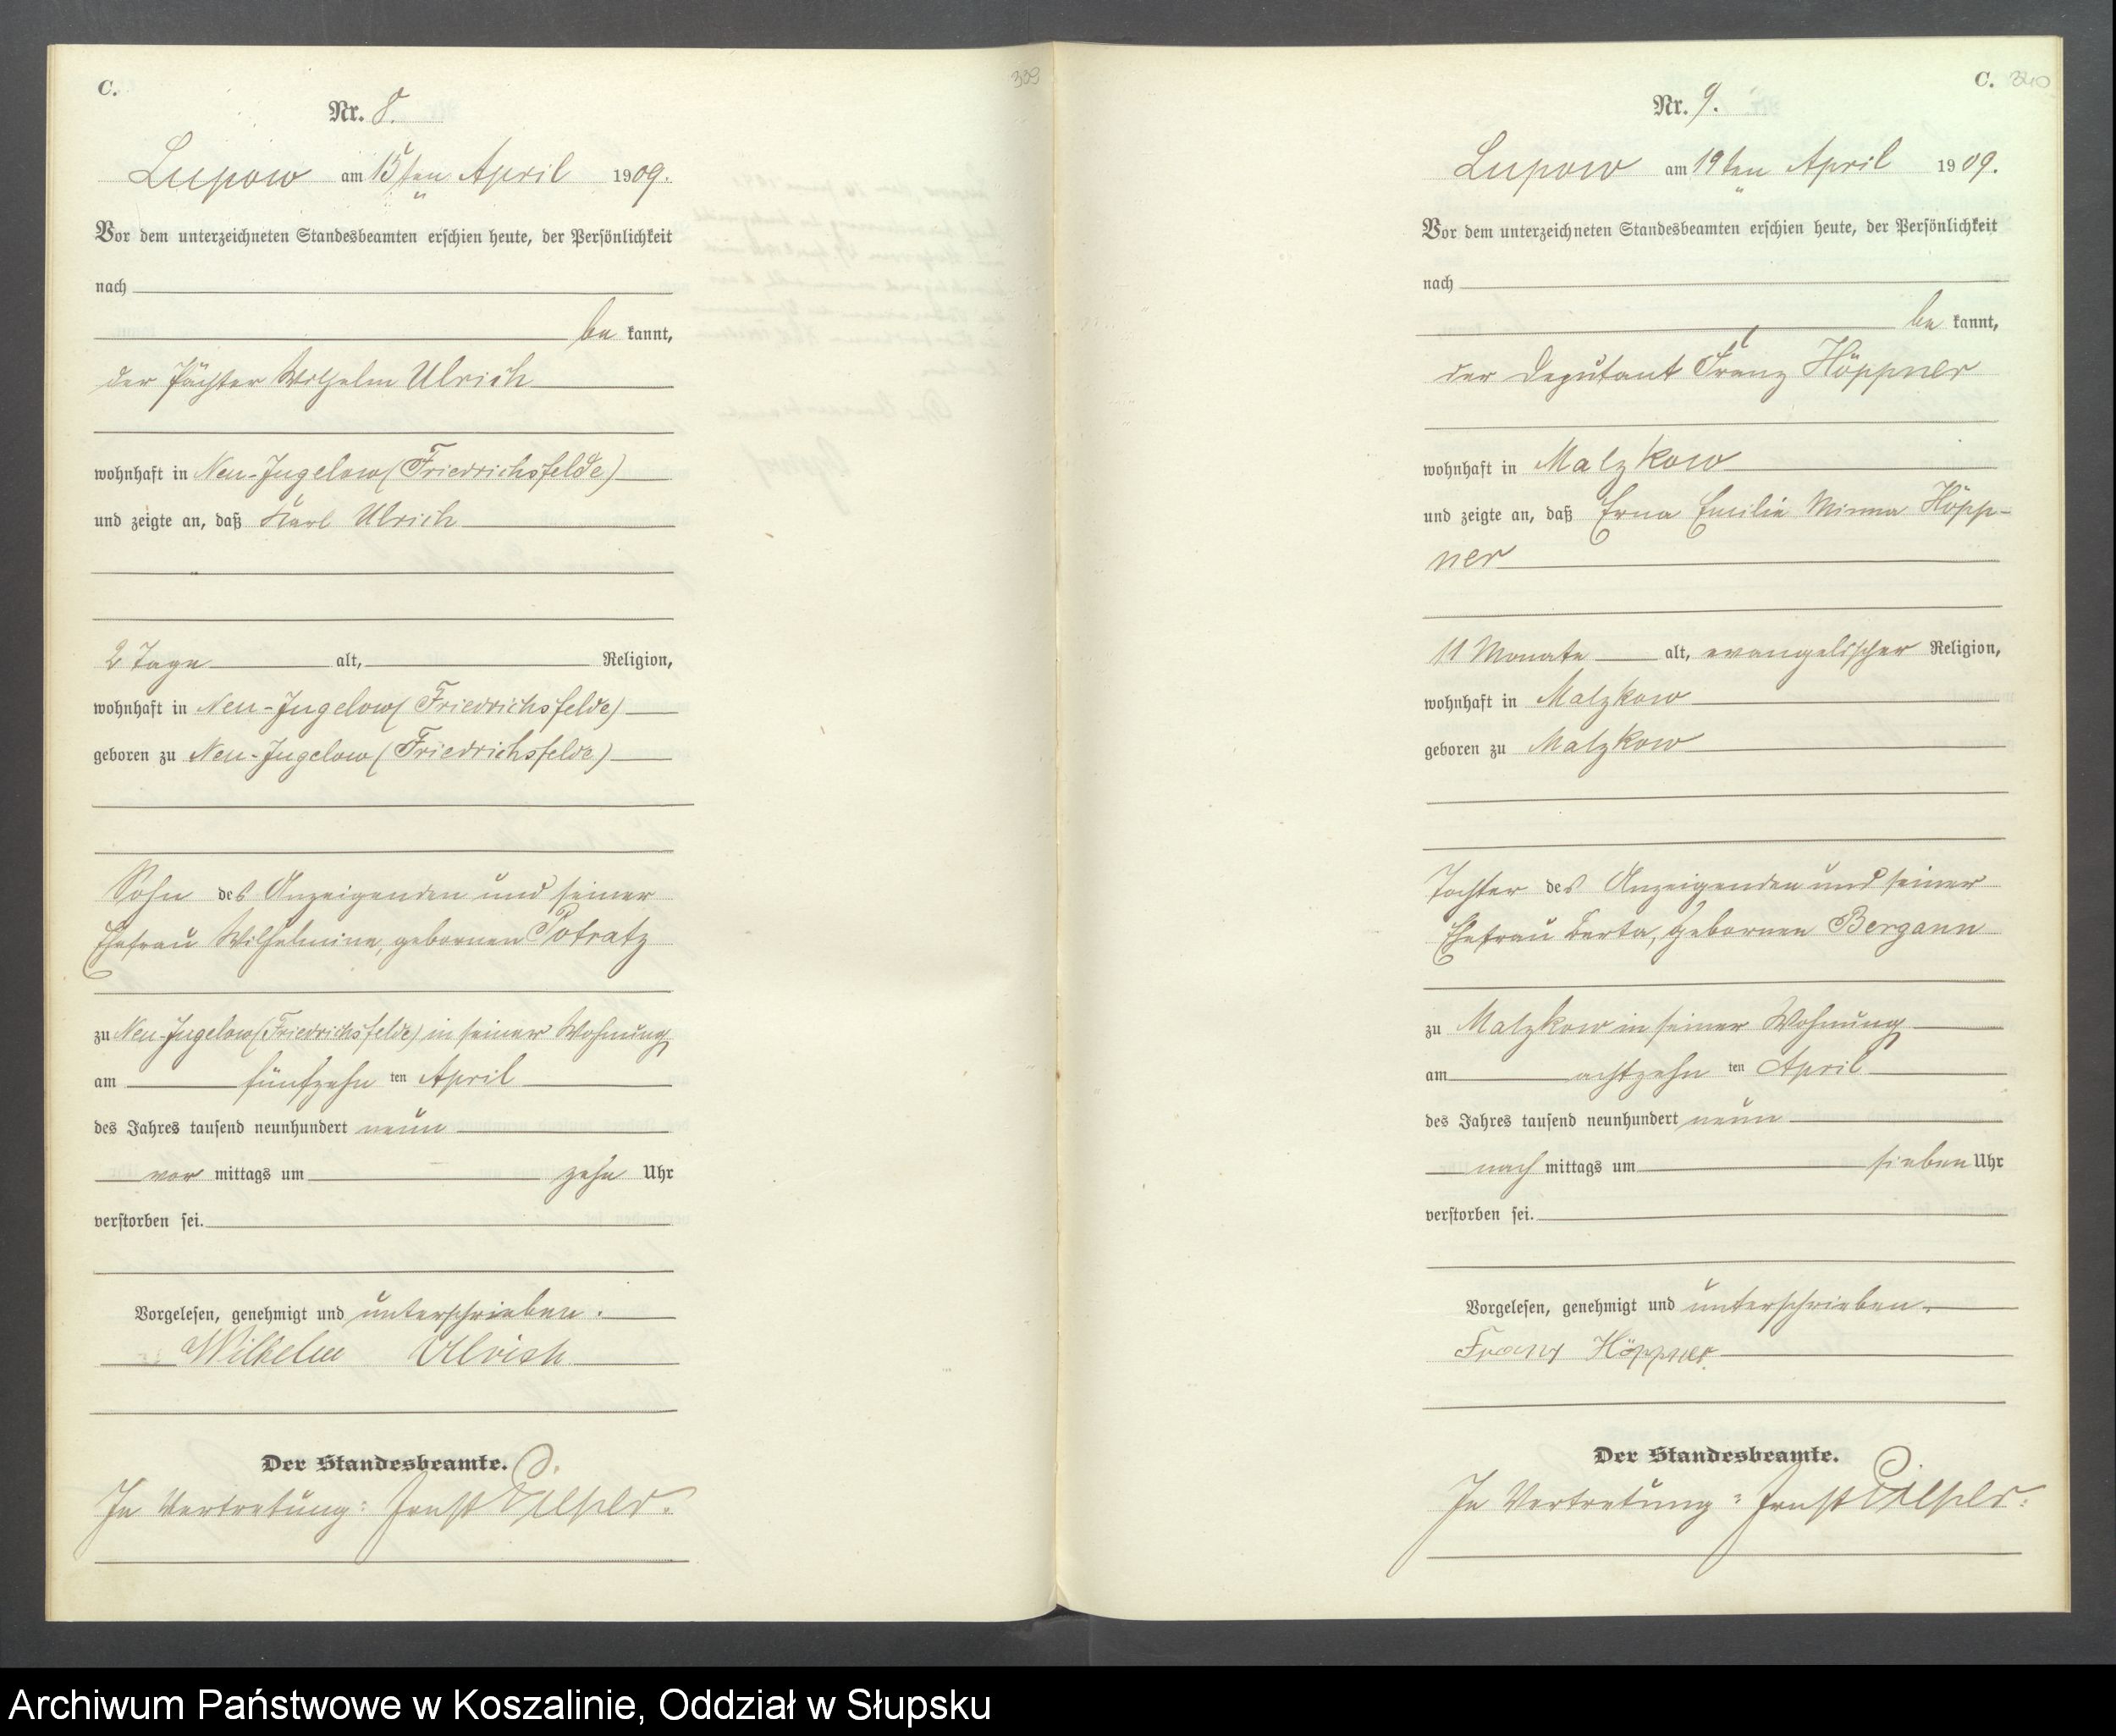 C.
339
Nr. 8.
Lupow am 15ten April 1909.
Vor dem unterzeichneten Standesbeamten erschien heute, der Persönlichkeit
nach
be kannt,
der Pächter Wilhelm Ulrich
wohnhaft in Neu-Jugelow (Friedrichsfelde)
und zeigte an, daß Karl Ulrich
2 Tage alt, Religion,
wohnhaft in Neu-Jugelow (Friedrichsfelde)
geboren zu Neu-Jugelow (Friedrichsfelde)
Sohn des Anzeigenden und seiner
Ehefrau Wilhelmine, geborenen Potratz
zu Neu-Jugelow (Friedrichsfelde) in seiner Wohnung
am fünfzehn ten April
des Jahres tausend neunhundert neun
vor mittags um zehn Uhr
verstorben sei.
Vorgelesen, genehmigt und unterschrieben.
Wilhelm Ulrich
Der Standesbeamte.
In Vertretung: Ernst
C. 340
Nr. 9.
Lupow am 19ten April 1909.
Vor dem unterzeichneten Standesbeamten erschien heute, der Persönlichkeit
nach
be kannt,
der Deputant Franz Höppner
wohnhaft in Malzkow
und zeigte an, daß Erna Emilie Minna Höpp-
ner
11 Monate alt, evangelischer Religion,
wohnhaft in Malzkow
geboren zu Malzkow
Tochter des Anzeigenden und seiner
Ehefrau Berta, geborenen Bergann
zu Malzkow in seiner Wohnung
am achtzehn ten April
des Jahres tausend neunhundert neun
nach mittags um sieben Uhr
verstorben sei.
Vorgelesen, genehmigt und unterschrieben.
Franz Höppner.
Der Standesbeamte.
In Vertretung: Ernst
Archiwum Państwowe w Koszalinie, Oddział w Słupsku